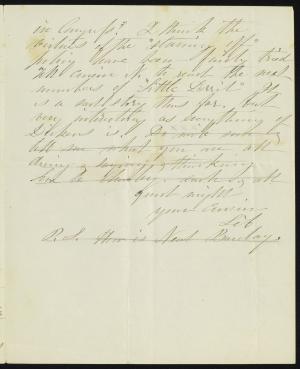 in Congress? I think the
virtues of the "staving off"
policy have been fairly tried
We ensure up to reach the next
numbers of "Little Dorrit" It
is a mystery thus far. But
very interesting as everything of
Dickens is. Do write and
tell me what you are all
doing, saying & thinking
good night
your Cousin
Lib
P.S. How is Neut Barclay.